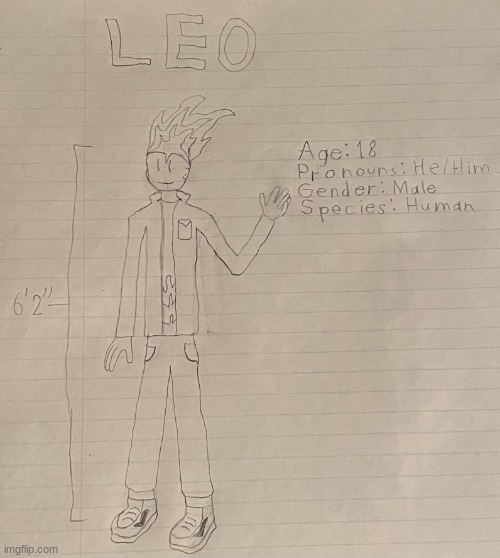 LEO
Age: 18
Pronouns: He/Him
Gender: Male
Species: Human
6'2"
imgflip.com